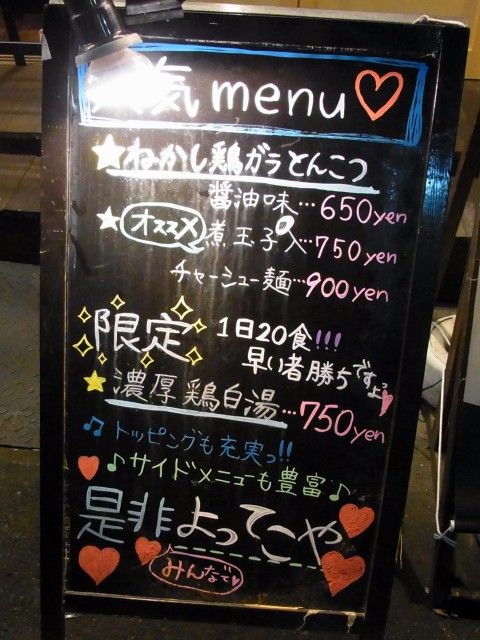 気menu♡
★ねかし鶏ガラとんこつ
醤油味…650yen
★オススメ 煮玉子入…750yen
チャーシュー麺…900yen
限定 1日20食!!!
早い者勝ちですよっ
★濃厚鶏白湯…750yen
♫トッピングも充実っ!!
♪サイドメニューも豊富♪
是非よってこや
みんなで♥